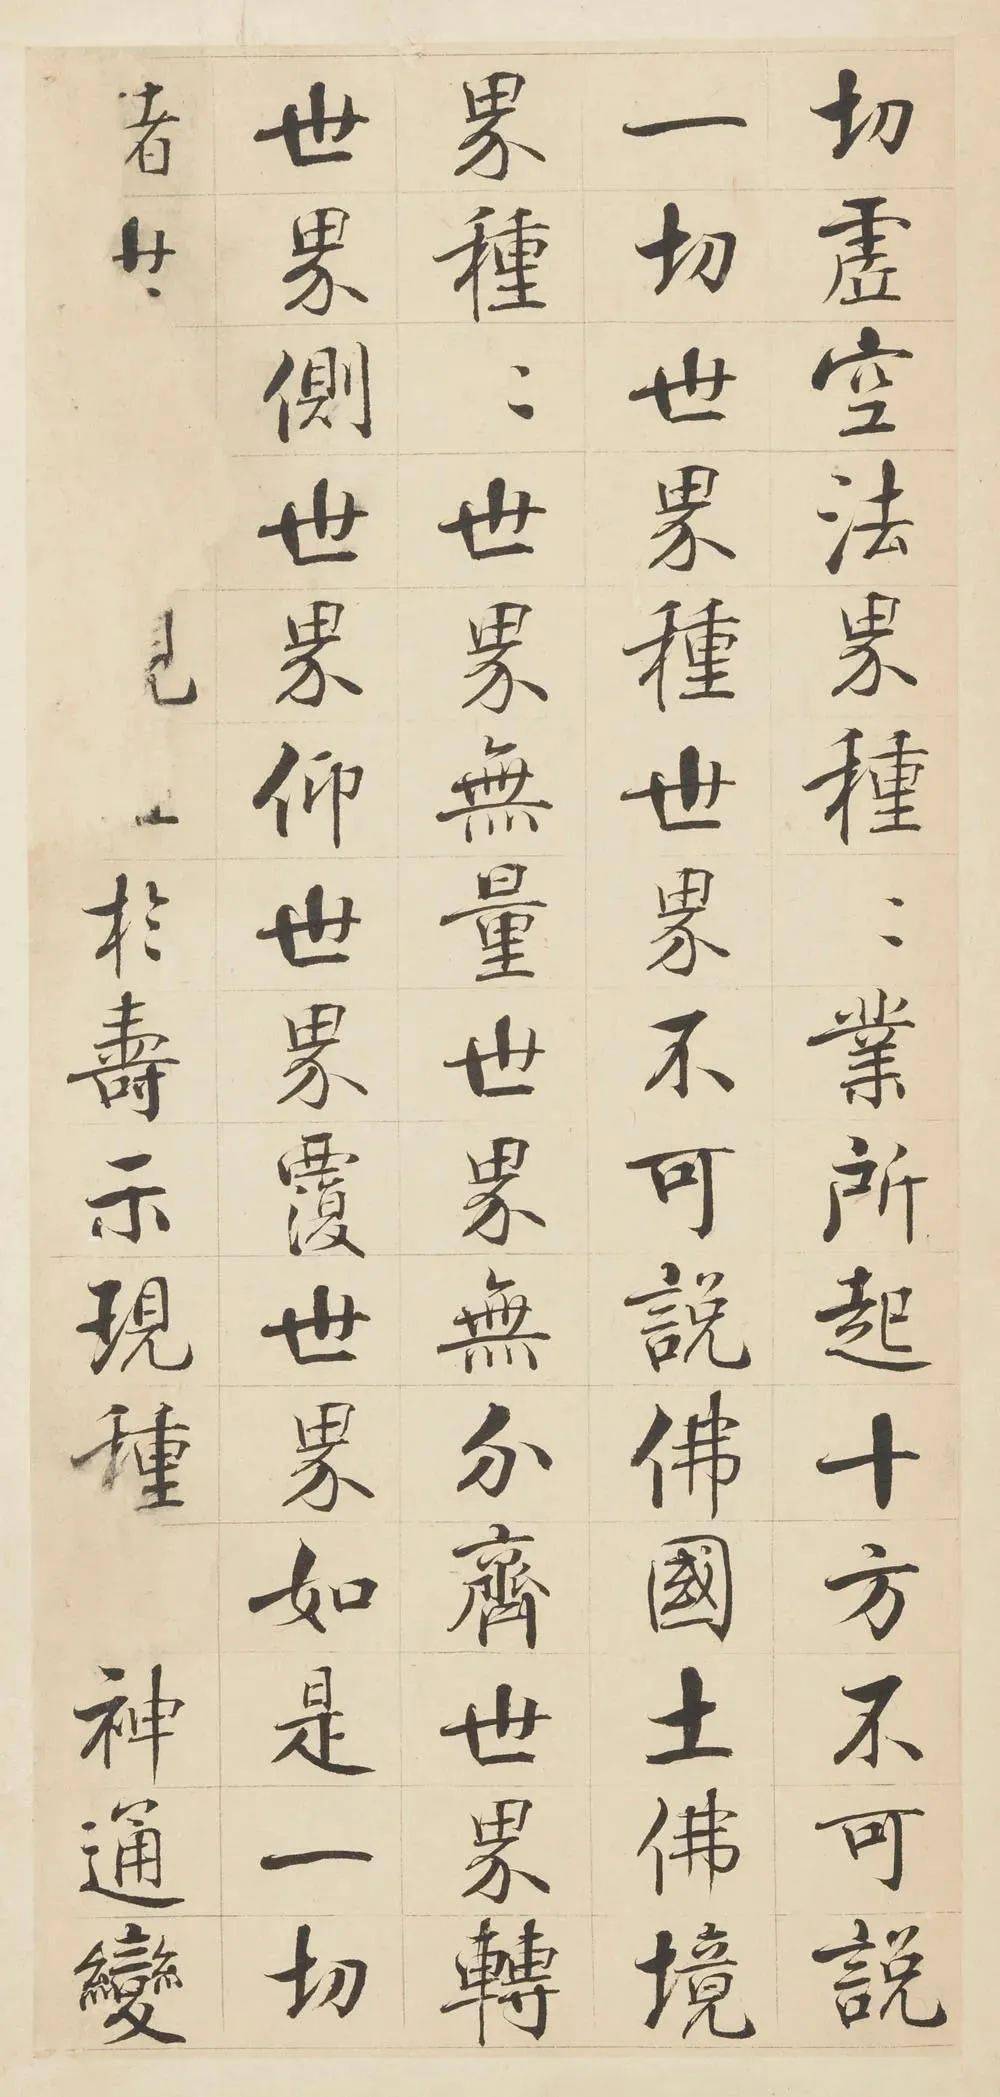 切虛空法界種〻業所起十方不可說
一切世界種世界不可說佛國土佛境
界種〻世界無量世界無分齊世界轉
世界側世界仰世界覆世界如是一切
者 於壽示現種 神通變